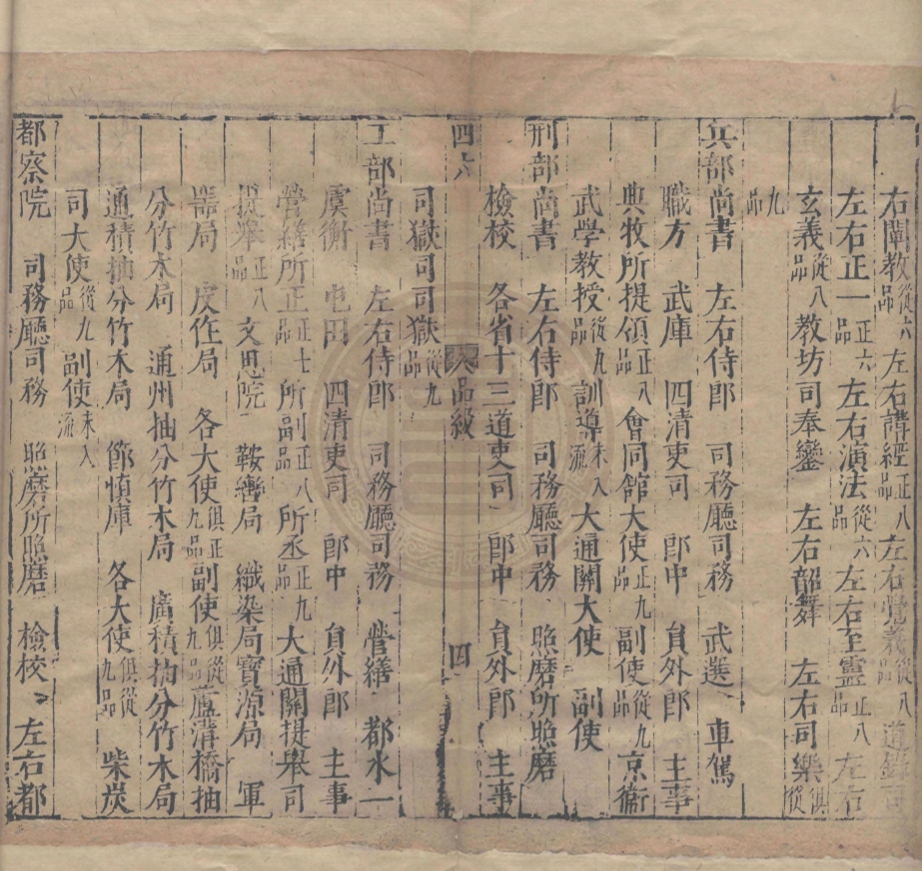 右闡教從六品左右講經正八品左右覺義從八品道錄司
左右正一正六品左右演法從六品左右至靈正八品左右
玄義從八品教坊司奉鑾 左右韶舞 左右司樂俱從
九品
兵部尚書 左右侍郎 司務廳司務 武選 車駕
職方 武庫 四清吏司 郎中 員外郎 主事
典牧所提領正八品會同館大使正九品副使從九品京衞
武學教授從九品訓導未入流大通關大使 副使
刑部尚書 左右侍郎 司務廳司務 照磨所照磨
檢校 各省十三道吏司 郎中 員外郎 主事
四六 品級 四
司獄司司獄從九品
工部尚書 左右侍郎 司務廳司務 營繕 都水
虞衡 屯田 四清吏司 郎中 員外郎 主事
營繕所正正七品所副正八品所丞正九品大通關提舉司
提舉正八品文思院 鞍轡局 織染局寶源局 軍
器局 皮作局 各大使俱正九品副使俱從九品蘆溝橋抽
分竹木局 通州抽分竹木局 廣積抽分竹木局
通積抽分竹木局 節慎庫 各大使俱從九品 柴炭
司大使從九品副使未入流
都察院 司務廳司務 照磨所照磨 檢校 左右都